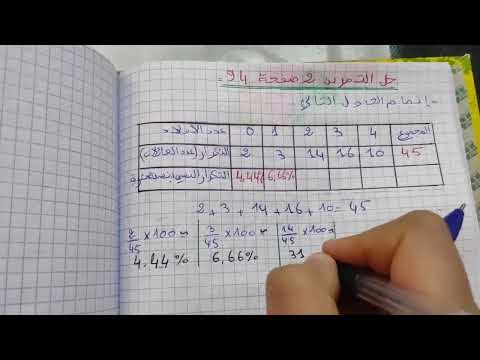 حل التمرين 2 صفحة 94.
- إتمام الجدول التالي.
عدد الأولاد 0 1 2 3 4 المجموع
التكرار (عدد العائلات) 2 3 14 16 10 45
التكرار النسبي 4,44% 6,66%
2 + 3 + 14 + 16 + 10 = 45
2/45 ×100 = 3/45 ×100 = 14/45 ×100=
4.44% 6,66% 31